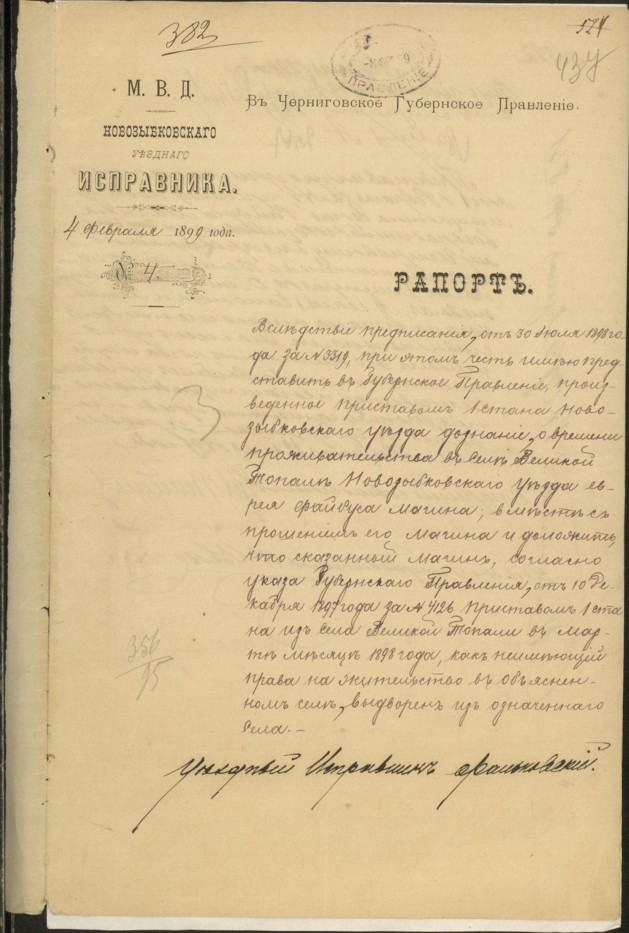 382
524
437
ПРАВЛЕНІЕ
М. В. Д.
НОВОЗЫБКОВСКАГО
УѢЗДНАГО
ИСПРАВНИКА.
4 Февраля 1899 года.
№ 4
Въ Черниговское Губернское Правленіе.
РАПОРТЪ.
Вслѣдствіе предписанія, отъ 30 Іюля 1898 го-
да за № 3319, при этомъ честь имѣю пред-
ставить въ Губернское Правленіе, произ-
веденное Приставомъ 1 стана Ново-
зыбковскаго уѣзда дознаніе, о времени
проживательства въ Селѣ Великой
Топалѣ Новозыбковскаго уѣзда ев-
рея Файбуса Магина, вмѣстѣ съ
прошеніемъ его Магина и доложить,
что сказанный Магинъ, согласно
указа Губернскаго Правленія, отъ 10 Де-
кабря 1897 года за № 4126 Приставомъ 1 ста-
на изъ Села Великой Топали въ Мар-
тѣ мѣсяцѣ 1898 года, какъ неимѣющій
права на жительство въ объяснен-
номъ селѣ, выдворенъ изъ означеннаго
Села. —
356
95
Уѣздный Исправникъ